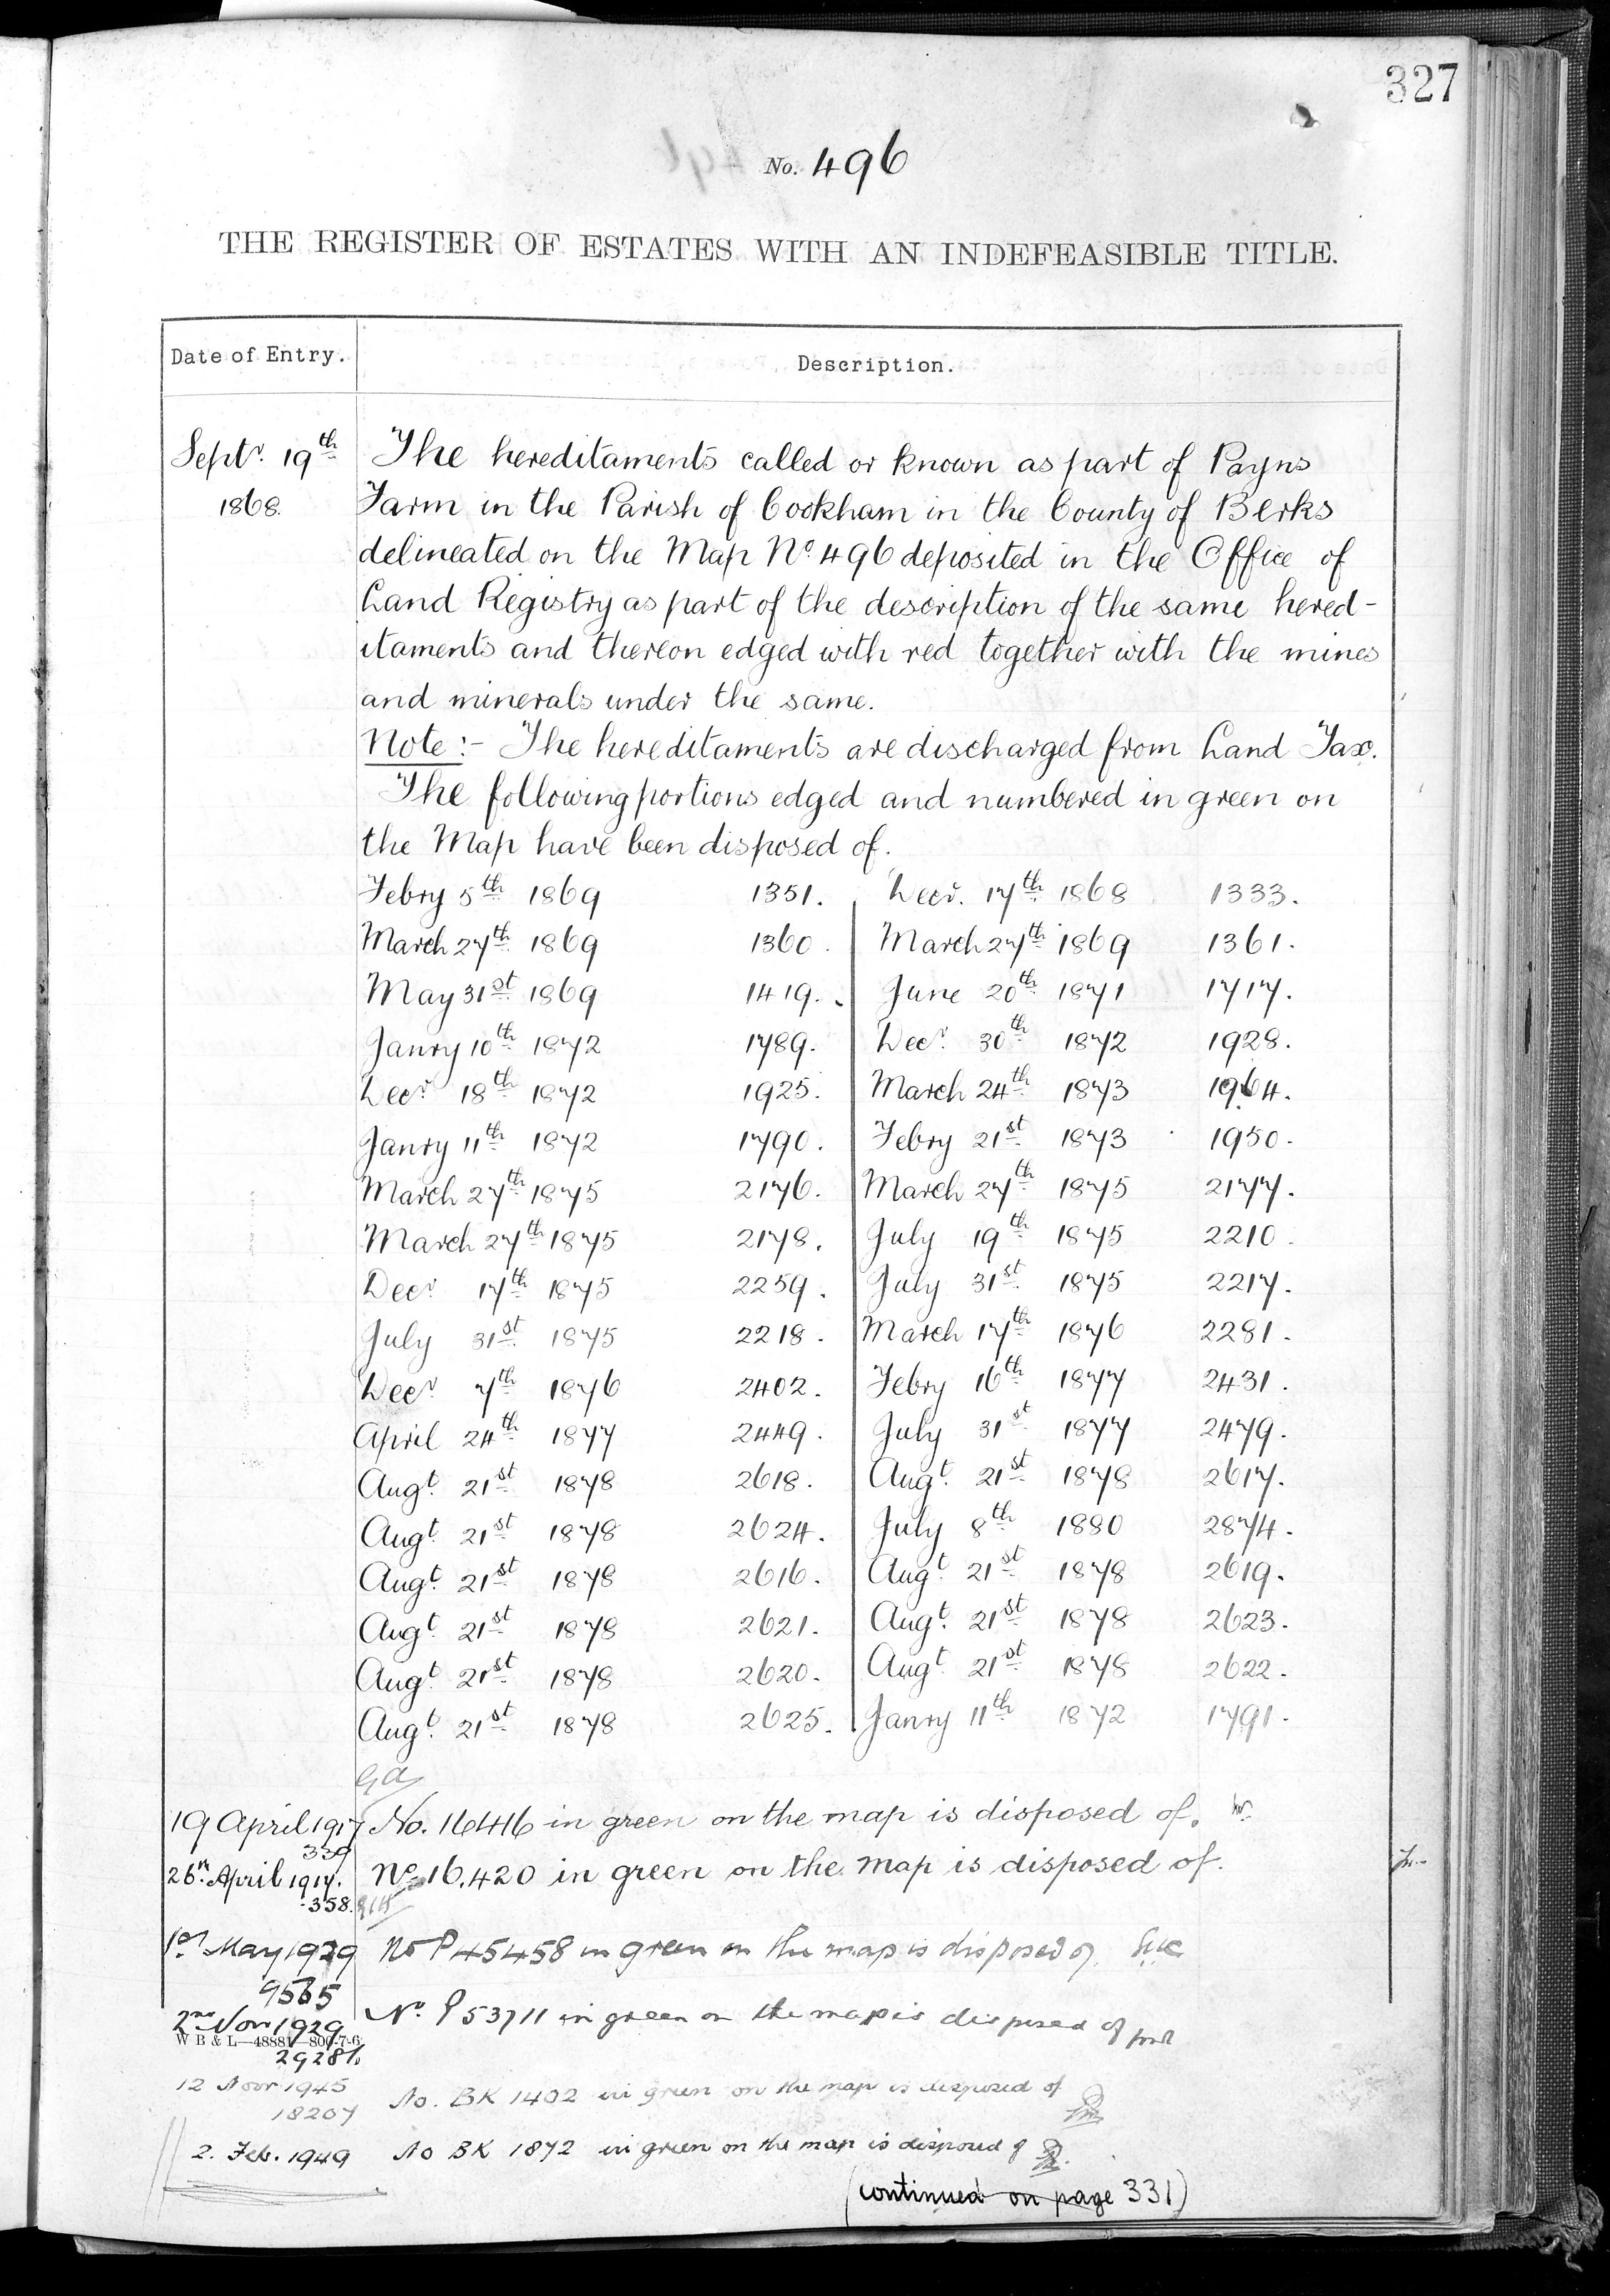 327
No. 496
THE REGISTER OF ESTATES WITH AN INDEFEASIBLE TITLE.
Date of Entry. Description.
Septr. 19th The hereditaments called or known as part of Payns
1868. Farm in the Parish of Cookham in the County of Berks
delineated on the Map No. 496 deposited in the Office of
Land Registry as part of the description of the same hered-
itaments and thereon edged with red together with the mines
and minerals under the same.
Note:- The hereditaments are discharged from Land Tax.
The following portions edged and numbered in green on
the Map have been disposed of.
Febry 5th 1869 1351. Decr. 17th 1868 1333.
March 27th 1869 1360. March 27th 1869 1361.
May 31st 1869 1419. June 20th 1871 1717.
Janry 10th 1872 1789. Decr. 30th 1872 1928.
Decr. 18th 1872 1925. March 24th 1873 1964.
Janry 11th 1872 1790. Febry 21st 1873 1950.
March 27th 1875 2176. March 27th 1875 2177.
March 27th 1875 2178. July 19th 1875 2210.
Decr 17th 1875 2259. July 31st 1875 2217.
July 31st 1875 2218. March 17th 1876 2281.
Decr. 7th 1876 2402. Febry 16th 1877 2431.
April 24th 1877 2449. July 31st 1877 2479.
Augt. 21st 1878 2618. Augt. 21st 1878 2617.
Augt. 21st 1878 2624. July 8th 1880 2874.
Augt. 21st 1878 2616. Augt. 21st 1878 2619.
Augt. 21st 1878 2621. Augt. 21st 1878 2623.
Augt. 21st 1878 2620. Augt. 21st 1878 2622.
Augt. 21st 1878 2625. Janry 11th 1872 1791.
19 April 1917 No. 16416 in green on the map is disposed of.
339
26th April 1917. No. 16.420 in green on the map is disposed of.
358.
1st May 1929 No P45458 in green on the map is disposed of.
9565
2nd Nov 1929 No. P53711 in green on the map is disposed of
W B & L—48881—800-7-6
12 Novr 1945 No. BK 1402 in green on the map is disposed of
18207
2. Feb. 1949 No BK 1872 in green on the map is disposed of
(continued on page 331)